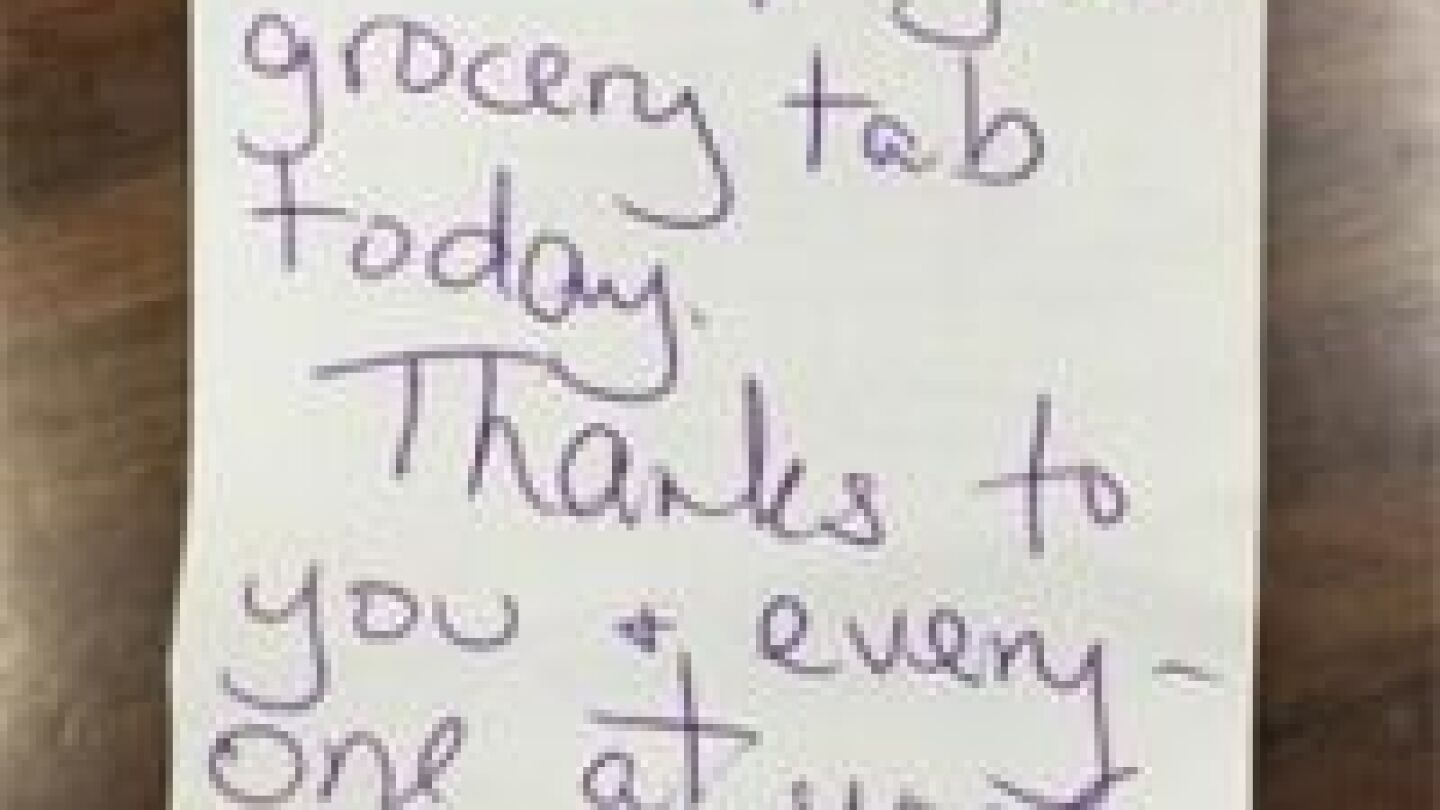 grocery tab
today.
Thanks to
you & every-
one at